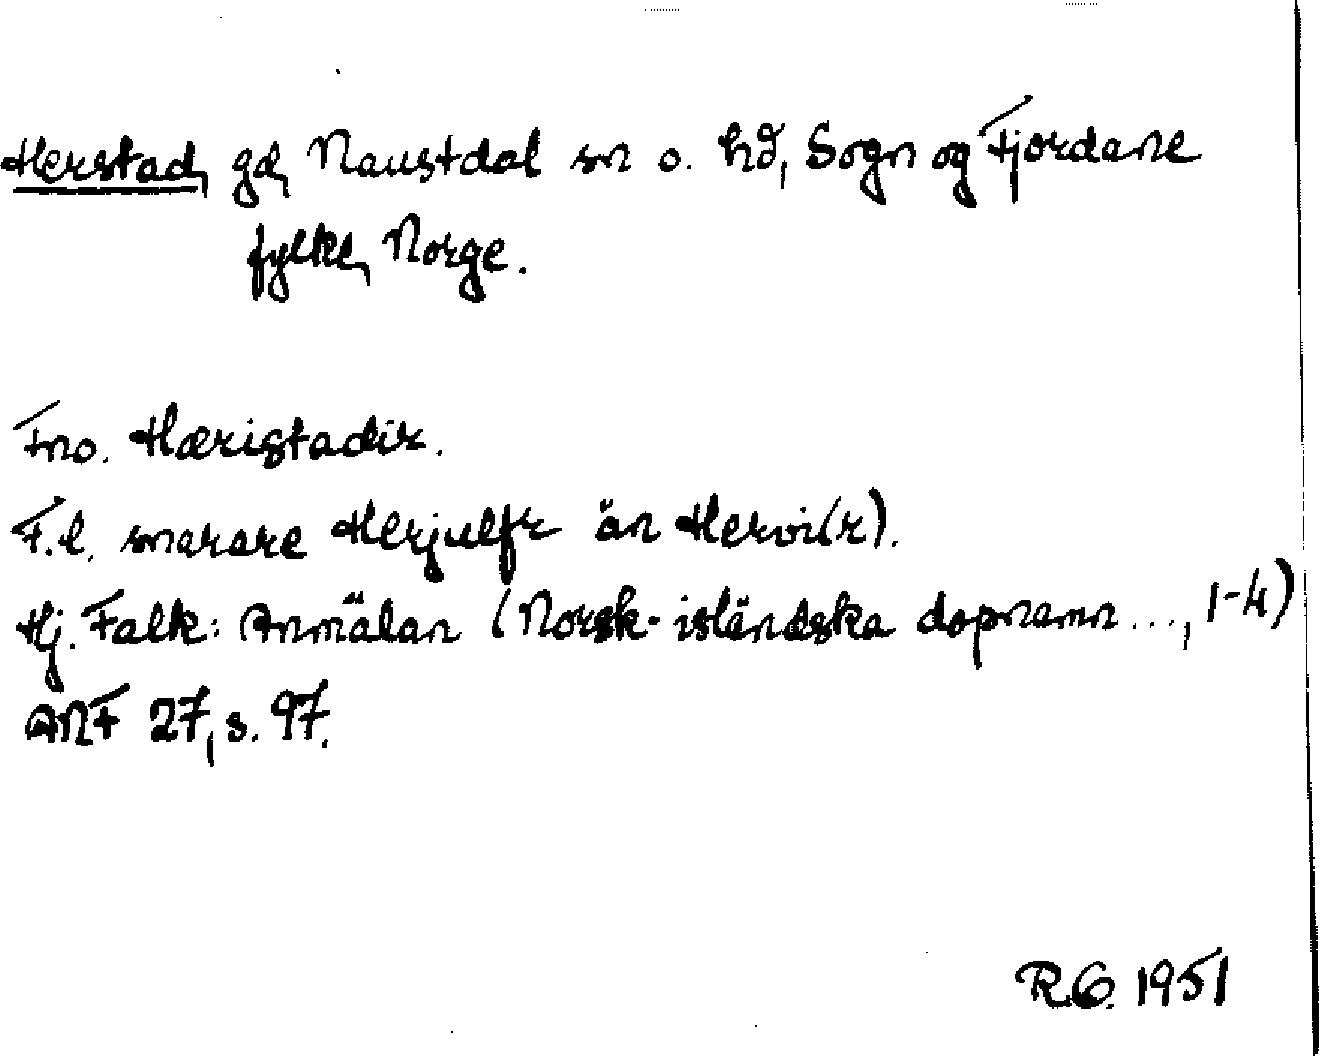 Herstad, gd, Naustdal sn o. hd, Sogn og Fjordane
fylke, Norge.
Fno. Hæristadir.
F.l. snarare Herjulfr än Hervi(r).
Hj. Falk: Anmälan (Norsk-isländska dopnamn..., 1-4)
ANF 27, s. 97.
R.G. 1951